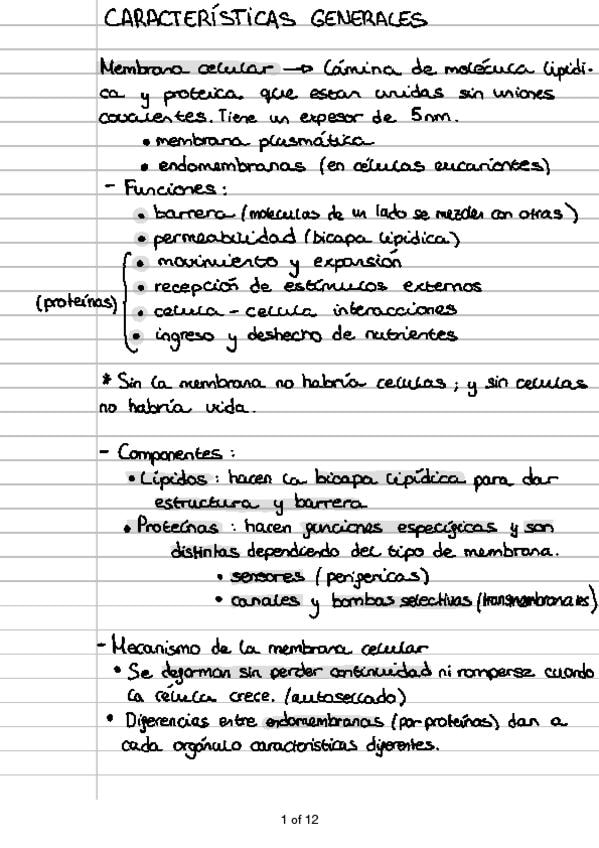 CARACTERÍSTICAS GENERALES
Membrana celular → Lámina de molécula lipídi-
ca y proteica, que estan unidas sin uniones
covalentes. Tiene un espesor de 5nm.
• membrana plasmática
• endomembranas (en células eucariontes)
- Funciones:
• barrera (moleculas de un lado se mezclen con otras)
• permeabilidad (bicapa lipidica)
• movimiento y expansión
• recepción de estímulos externos
(proteínas) • celula - celula interacciones
• ingreso y deshecho de nutrientes
* Sin la membrana no habría celulas; y sin celulas
no habría vida.
- Componentes:
• Lípidos: hacen la bicapa lipídica para dar
estructura y barrera
• Proteínas: hacen funciones específicas y son
distintas dependiendo del tipo de membrana.
• sensores (perifericas)
• canales y bombas selectivas (transmembranales)
- Mecanismo de la membrana celular
• Se deforman sin perder continuidad ni romperse cuando
la célula crece. (autosellado)
• Diferencias entre endomembranas (por proteínas) dan a
cada orgánulo características diferentes.
1 of 12